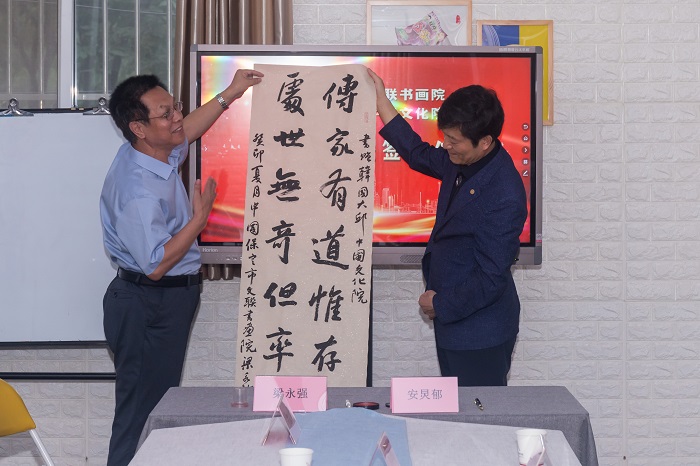 联书画院
文化院
签
书赠韓国大邱中国文化院
傳家有道惟存
處世無奇但率
癸卯夏月中国保定市文联書畫院梁永
梁永强
安炅郁